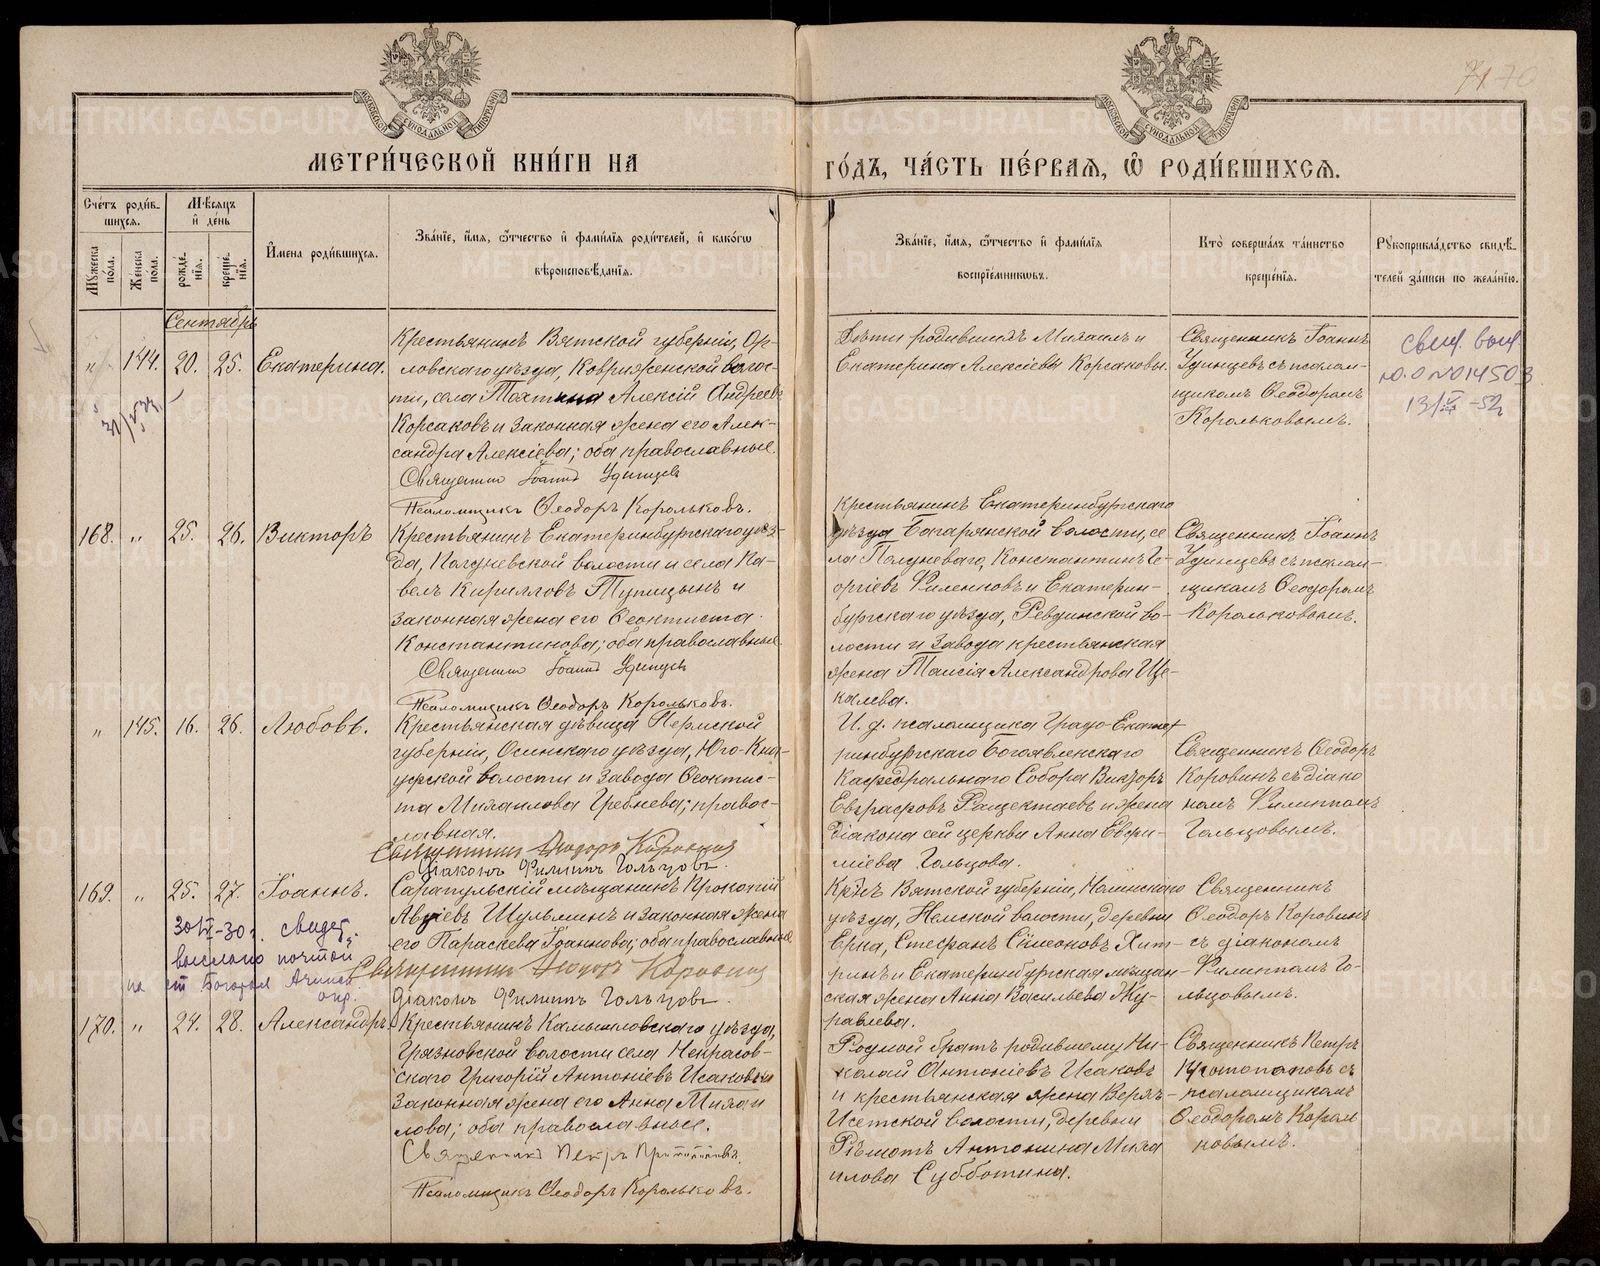 71 70
МОСКОВСКОЙ СѴНОДАЛЬНОЙ ТИПОГРАФІИ
МОСКОВСКОЙ СѴНОДАЛЬНОЙ ТИПОГРАФІИ
МЕТРИ́ЧЕСКОЙ КНИ́ГИ НА
ГО́ДЪ, ЧА́СТЬ ПЕ́РВАЯ, Ѽ РОДИ́ВШИХСЯ.
Сче́тъ роди́в-
шихся.
Мꙋжеска по́ла.
Же́нска по́ла.
Мѣ́сяцъ
и҆ де́нь
рожде́-
нїѧ.
креще́-
нїѧ.
И҆мена роди́вшихся.
Зва́нїе, и҆́мя, ѻ҆́тчество и҆ фами́лїя роди́телей, и҆ како́гѡ
вѣроисповѣ́данїя.
Зва́нїе, и҆́мя, ѻ҆́тчество и҆ фами́лїя
воспрїе́мникѡвъ.
Кто̀ соверша́лъ та́инство
креще́нїя.
Рꙋкоприкла́дство свидѣ́-
телей за́писи по жела́нїю.
Сентябрь
" 144. 20. 25. Екатерина.
Крестьянинъ Вятской губерніи, Ор-
ловскаго уѣзда, Ковриженской волос-
ти, села Алексій Андреевъ
Корсаковъ и законная жена его Алек-
сандра Алексіева; оба православные.
Священникъ Іоаннъ Удинцевъ
Псаломщикъ Ѳеодоръ Корольковъ.
Дѣти родившихъ Михаилъ и
Екатерина Алексіевы Корсаковы.
Священникъ Іоаннъ
Удинцевъ съ псалом-
щикомъ Ѳеодоромъ
Корольковымъ.
свид. выд.
Ю.О №014503
13/IX-52
168. " 25. 26. Викторъ
Крестьянинъ Екатеринбургскаго уѣз-
да, Полдневской волости и села Па-
велъ Кирилловъ Тупицынъ и
законная жена его Ѳеоктиста
Константинова; оба православные.
Священникъ Іоаннъ Удинцевъ
Псаломщикъ Ѳеодоръ Корольковъ.
Крестьянинъ Екатеринбургскаго
уѣзда Багарякской волости, се
ла Полдневаго, Константинъ Ге-
оргіевъ Филенковъ и Екатерин-
бургскаго уѣзда, Ревдинской во-
лости и завода крестьянская
жена Таисія Александрова Ще-
калева.
Священникъ Іоаннъ
Удинцевъ съ псалом-
щикомъ Ѳеодоромъ
Корольковымъ.
" 145. 16. 26. Любовь.
Крестьянская дѣвица Пермской
губерніи, Осинскаго уѣзда, Юго-Кна-
уфской волости и завода Ѳеоктис-
та Михаилова Гребнева; правос-
лавная.
Священникъ Ѳеодоръ Коровинъ
Діаконъ Филиппъ Гольцовъ.
И. д. псаломщика Градо-Екате-
ринбургскаго Богоявленскаго
Кафедральнаго Собора Викторъ
Евграфовъ и жена
діакона сей церкви Анна Евфи-
міева Гольцова.
Священникъ Ѳеодоръ
Коровинъ съ діако
номъ Филиппомъ
Гольцовымъ.
169. " 25. 27. Іоаннъ.
Сарапульскій мѣщанинъ Прокопій
Авдіевъ Шульминъ и законная жена
его Параскева Іоаннова; оба православные.
Священникъ Ѳеодоръ Коровинъ
Діаконъ Филиппъ Гольцовъ.
30/IX-30 г. свидет.
выслано почтой
на ст Боготол Ачинск
окр.
Кр-нъ Вятской губерніи, Нолинскаго
уѣзда, Немской волости, деревни
Ерка, Стефанъ Сѵмеоновъ Хит-
ринъ и Екатеринбургская мѣщан-
ская жена Анна Васильева Жу-
равлева.
Священникъ
Ѳеодоръ Коровинъ
съ діакономъ
Филиппомъ Го-
льцовымъ.
170. " 24. 28. Александръ.
Крестьянинъ Камышловскаго уѣзда,
Грязновской волости села Некрасов-
скаго Григорій Антоніевъ Исаковъ и
законная жена его Анна Михаи
лова; оба православные.
Священникъ Петръ Протопоповъ.
Псаломщикъ Ѳеодоръ Корольковъ.
Родной братъ родившему Ни-
колай Антоніевъ Исаковъ
и крестьянская жена Верхъ-
Исетской волости, деревни
Рѣшотъ Антонина Миха
илова Субботина.
Священникъ Петръ
Протопоповъ съ
псаломщикомъ
Ѳеодоромъ Король
ковымъ.
METRIKI.GASO-URAL.RU